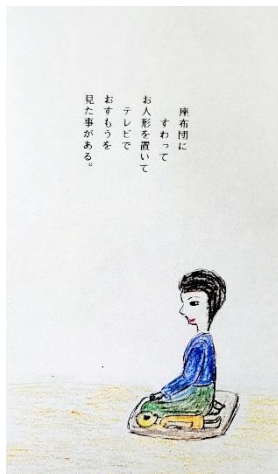 座布団に
すわって
お人形を置いて
テレビで
おすもうを
見た事がある。